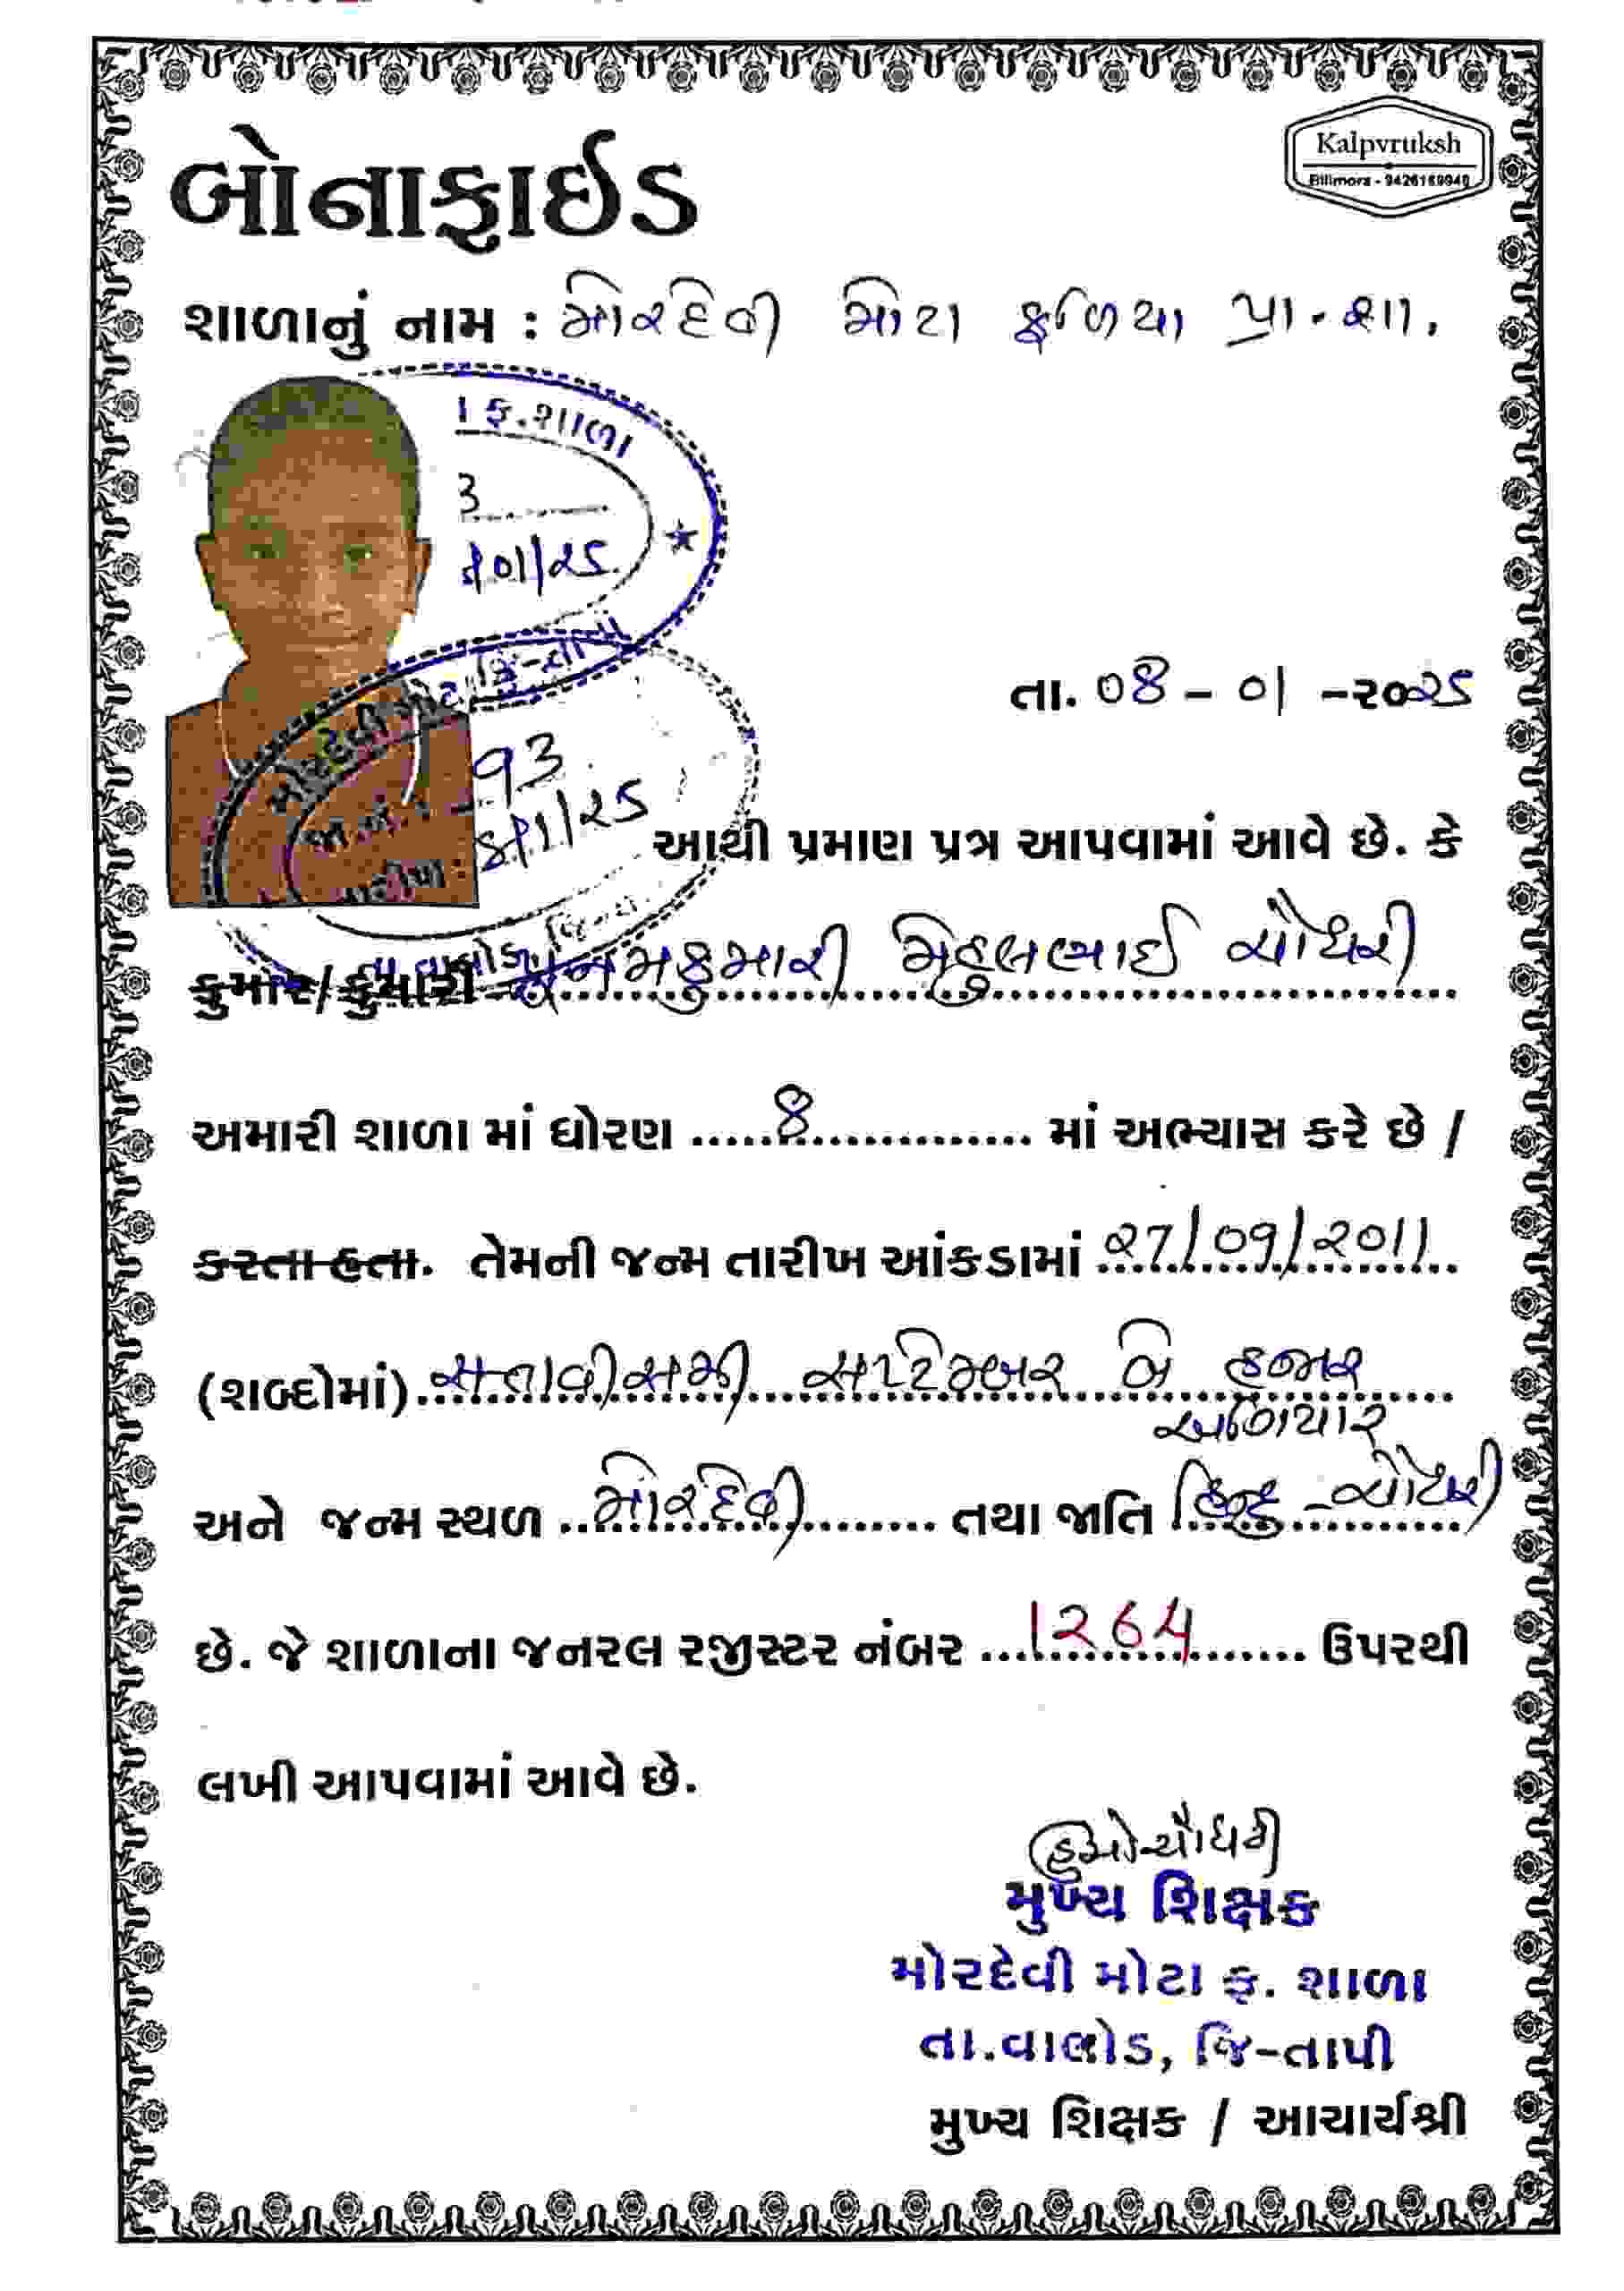 Kalpvruksh
Bilimora - 9426169940
બોનાફાઈડ
શાળાનું નામ : મોરદેવી મોટા ફળિયા પ્રા. શા.
ફ. શાળા
તા. 08 - 01 -૨૦25
93
8/1/25
આથી પ્રમાણ પત્ર આપવામાં આવે છે. કે
કુમાર/કુમારી મેહુલભાઈ ચૌધરી
અમારી શાળા માં ધોરણ 8 માં અભ્યાસ કરે છે /
કરતા હતા. તેમની જન્મ તારીખ આંકડામાં 27/09/2011
(શબ્દોમાં) સત્તાવીસમી સપ્ટેમ્બર બે હજાર
અગિયાર
અને જન્મ સ્થળ મોરદેવી તથા જાતિ હિન્દુ - ચૌધરી
છે. જે શાળાના જનરલ રજીસ્ટર નંબર 1264 ઉપરથી
લખી આપવામાં આવે છે.
મુખ્ય શિક્ષક
મોરદેવી મોટા ફ. શાળા
તા.વાલોડ, જિ-તાપી
મુખ્ય શિક્ષક / આચાર્યશ્રી